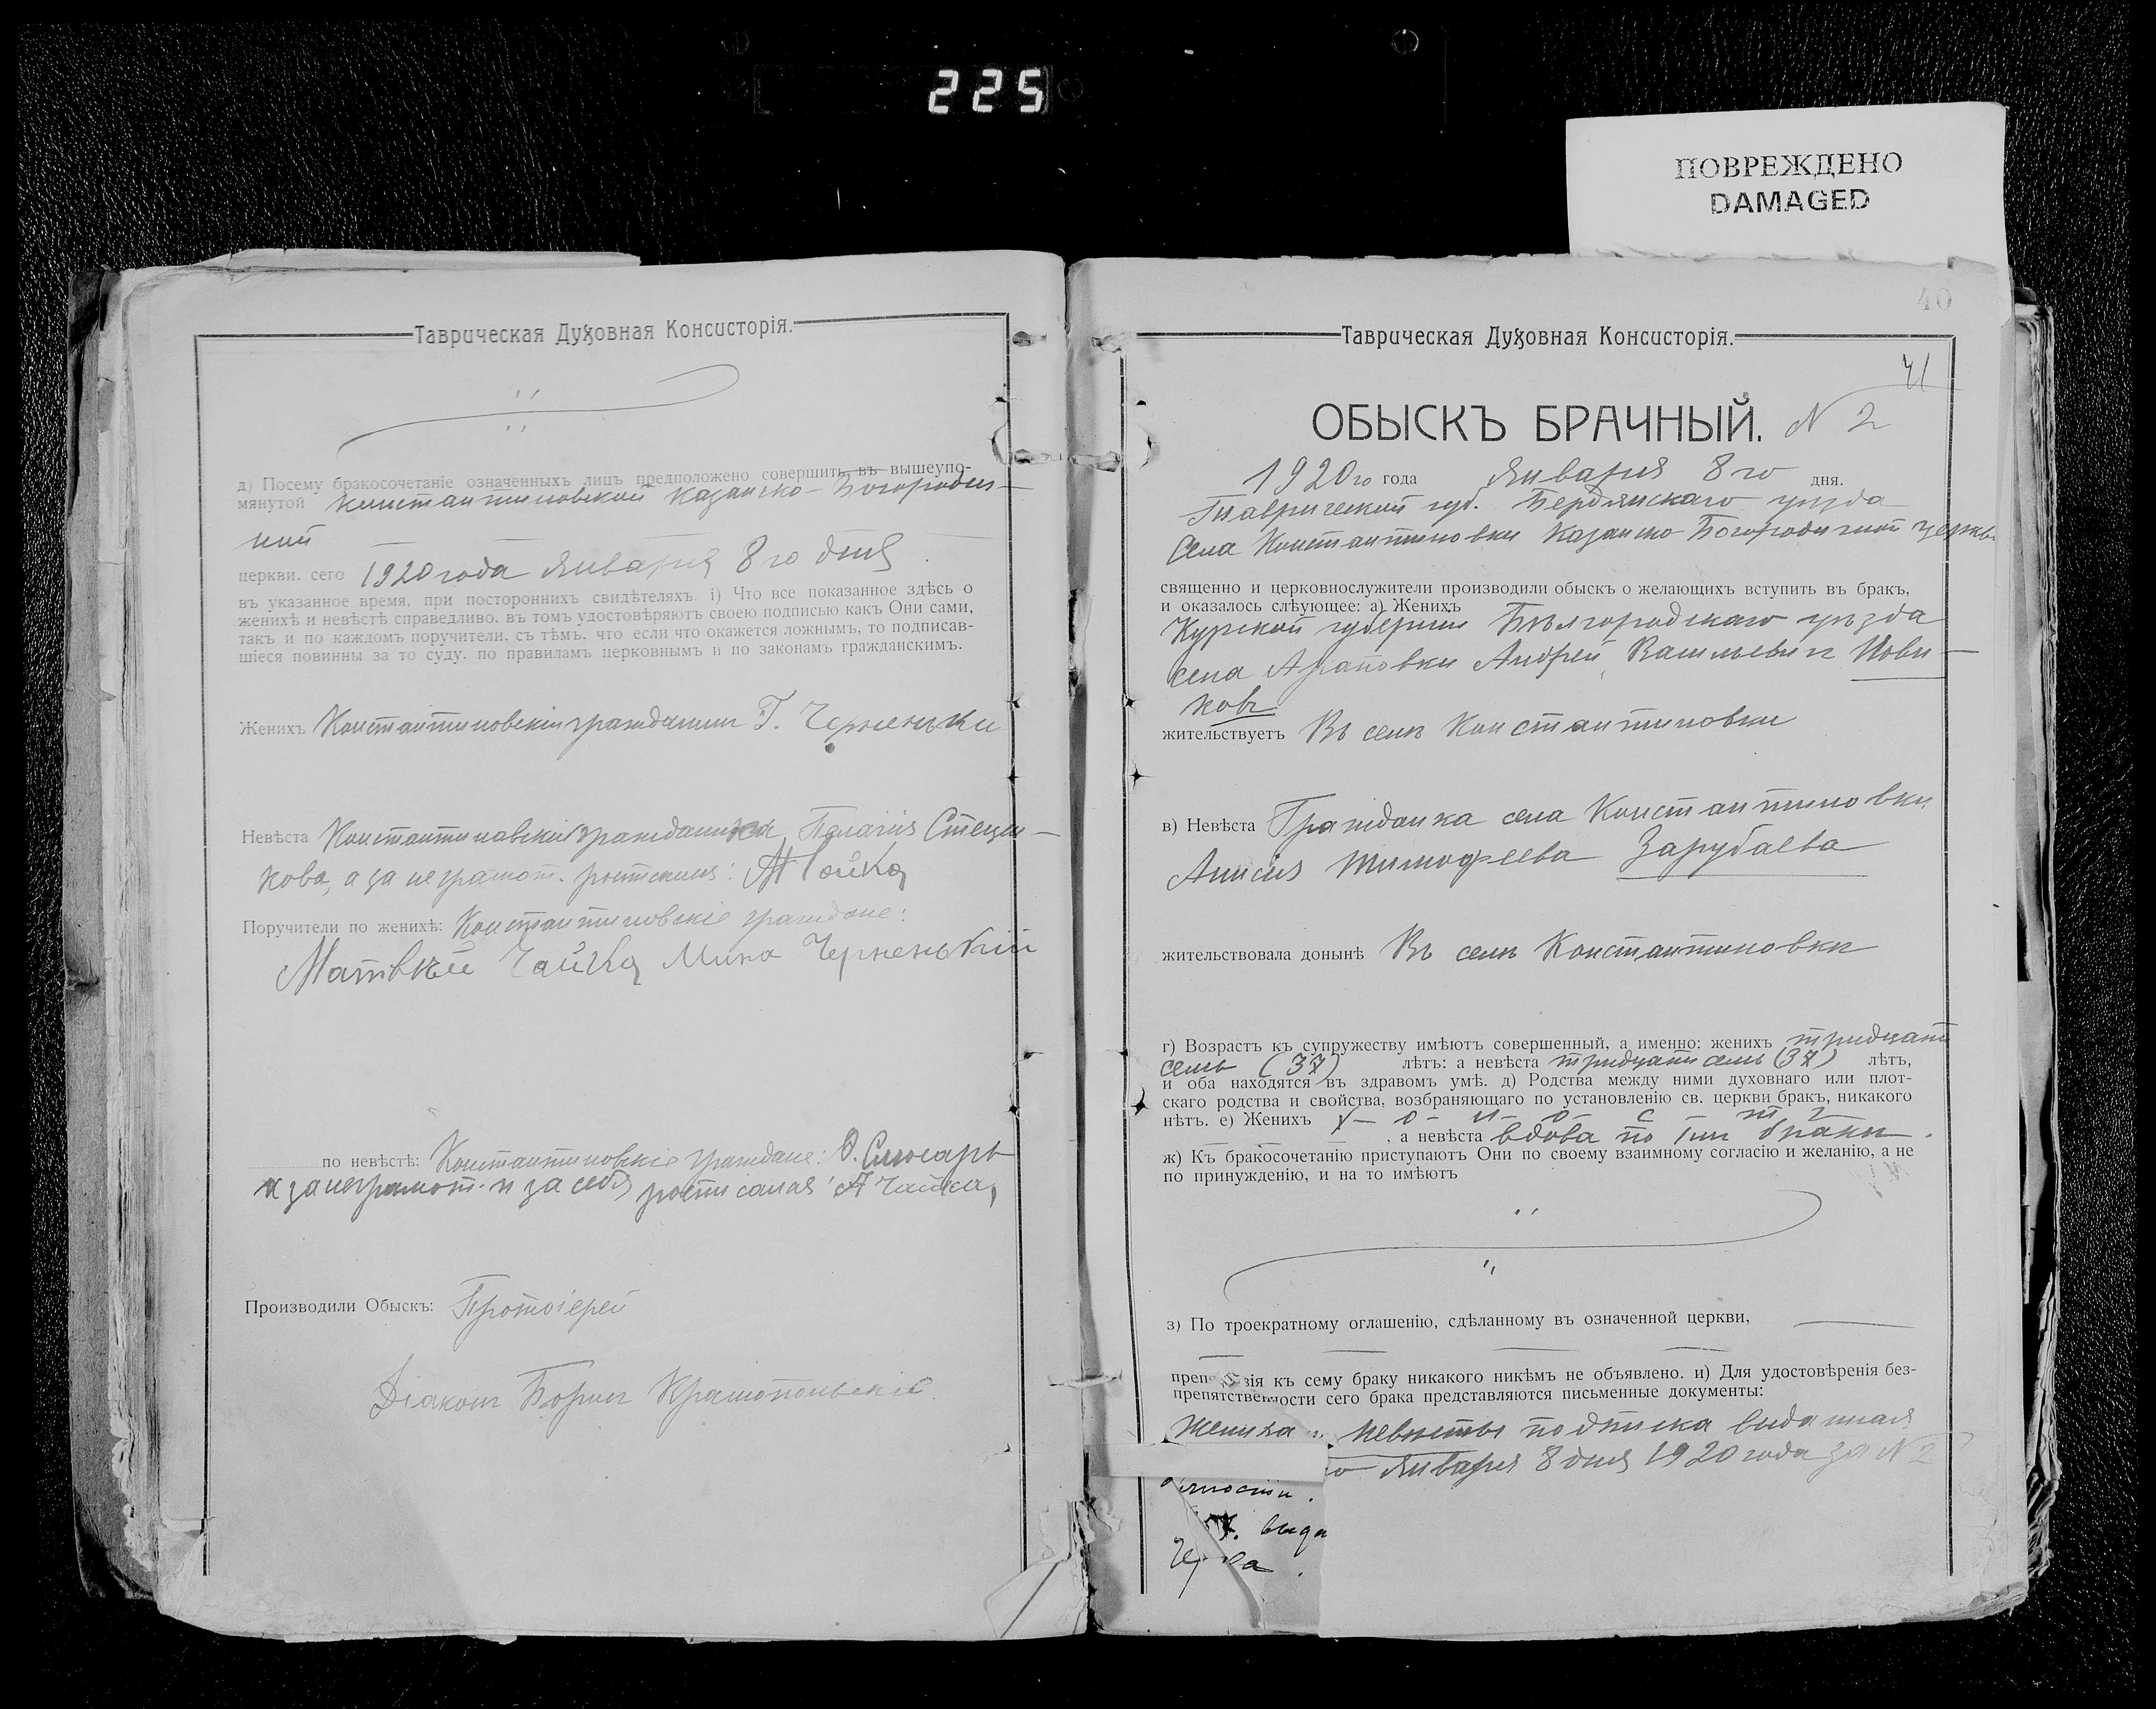 225
ПОВРЕЖДЕНО
DAMAGED
Таврическая Духовная Консисторія.
д) Посему бракосочетаніе означенныхъ лицъ предположено совершить въ вышеупо-
мянутой Константиновской Казанско-Богородич-
ной
церкви, сего 1920 года Января 8го дня.
въ указанное время, при постороннихъ свидѣтеляхъ. і) Что все показанное здѣсь о
женихѣ и невѣстѣ справедливо, въ томъ удостовѣряютъ своею подписью какъ Они сами,
такъ и по каждомъ поручители, съ тѣмъ, что если что окажется ложнымъ, то подписав-
шіеся повинны за то суду, по правиламъ церковнымъ и по законамъ гражданскимъ.
Женихъ Константиновскій гражданин Г. Черненьки
Невѣста Константиновский гражданка Пелагія
кова, а за неграмот. А Чайка
Поручители по женихѣ: Константиновскіе граждане:
Матвѣй Чайка Мина Черненькій
по невѣстѣ: Константиновскіе граждане: О. Слюсарь
и за неграмот. и за себя росписался А Чайка
Производили Обыскъ: Протоіерей
Діакон Борис
40
Таврическая Духовная Консисторія.
41
ОБЫСКЪ БРАЧНЫЙ. N 2
1920го года Января 8го дня.
Таврической губ. Бердянскаго уѣзда
Села Константиновки Казанско-Богородичной церкви
священно и церковнослужители производили обыскъ о желающихъ вступить въ бракъ,
и оказалось слѣующее: а) Женихъ
Курской губерніи Бѣлгородскаго уѣзда
села Андрей Васильевич Нови-
ковъ
жительствуетъ Въ селѣ Константиновки
в) Невѣста Гражданка села Константиновки
Анисія Тимофеева Зарубаева
жительствовала донынѣ Въ селѣ Константиновки
г) Возрастъ къ супружеству имѣютъ совершенный, а именно: женихъ тридцати
семь (37) лѣтъ: а невѣста тридцати семь (37) лѣтъ,
и оба находятся въ здравомъ умѣ. д) Родства между ними духовнаго или плот-
скаго родства и свойства, возбраняющаго по установленію св. церкви бракъ, никакого
нѣтъ. е) Женихъ х - о - л - о - с т ъ
, а невѣста вдова по І мъ бракѣ.
ж) Къ бракосочетанію приступаютъ Они по своему взаимному согласію и желанію, а не
по принужденію, и на то имѣютъ
з) По троекратному оглашенію, сдѣланному въ означенной церкви,
препо зія къ сему браку никакого никѣмъ не объявлено. и) Для удостовѣренія без-
препятственности сего брака представляются письменные документы:
Жениха и невѣсты подписка выданная
Января 8 дня 1920 года за N 2
выда